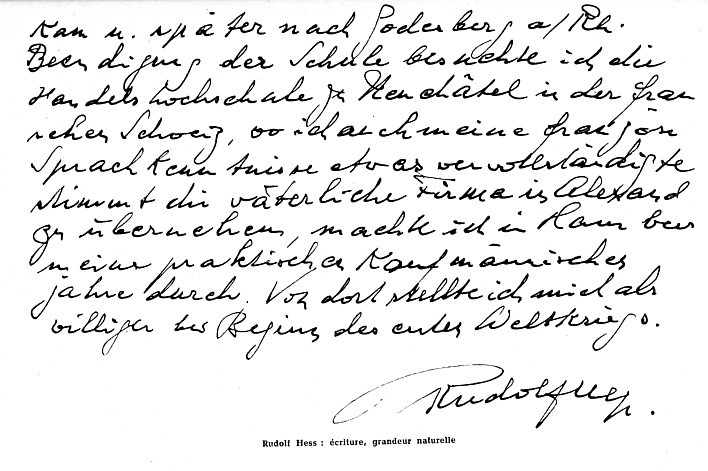 kam u. später nach Goderberg a/Rh.
Beendigung der Schule besuchte ich die
Handelshochschule zu Neuchâtel in der fran
ischen Schweiz, wo ich auch meine französi
Sprachkenntnisse etwas vervollständigte
stimmt die väterliche Firma in Alexand
zu übernehmen, machte ich in Hamburg
meine praktischen Kaufmännischen
jahre durch. Von dort stellte ich mich als
williger bei Beginn des ersten Weltkriegs.
Rudolf Heß.
Rudolf Hess : écriture, grandeur naturelle